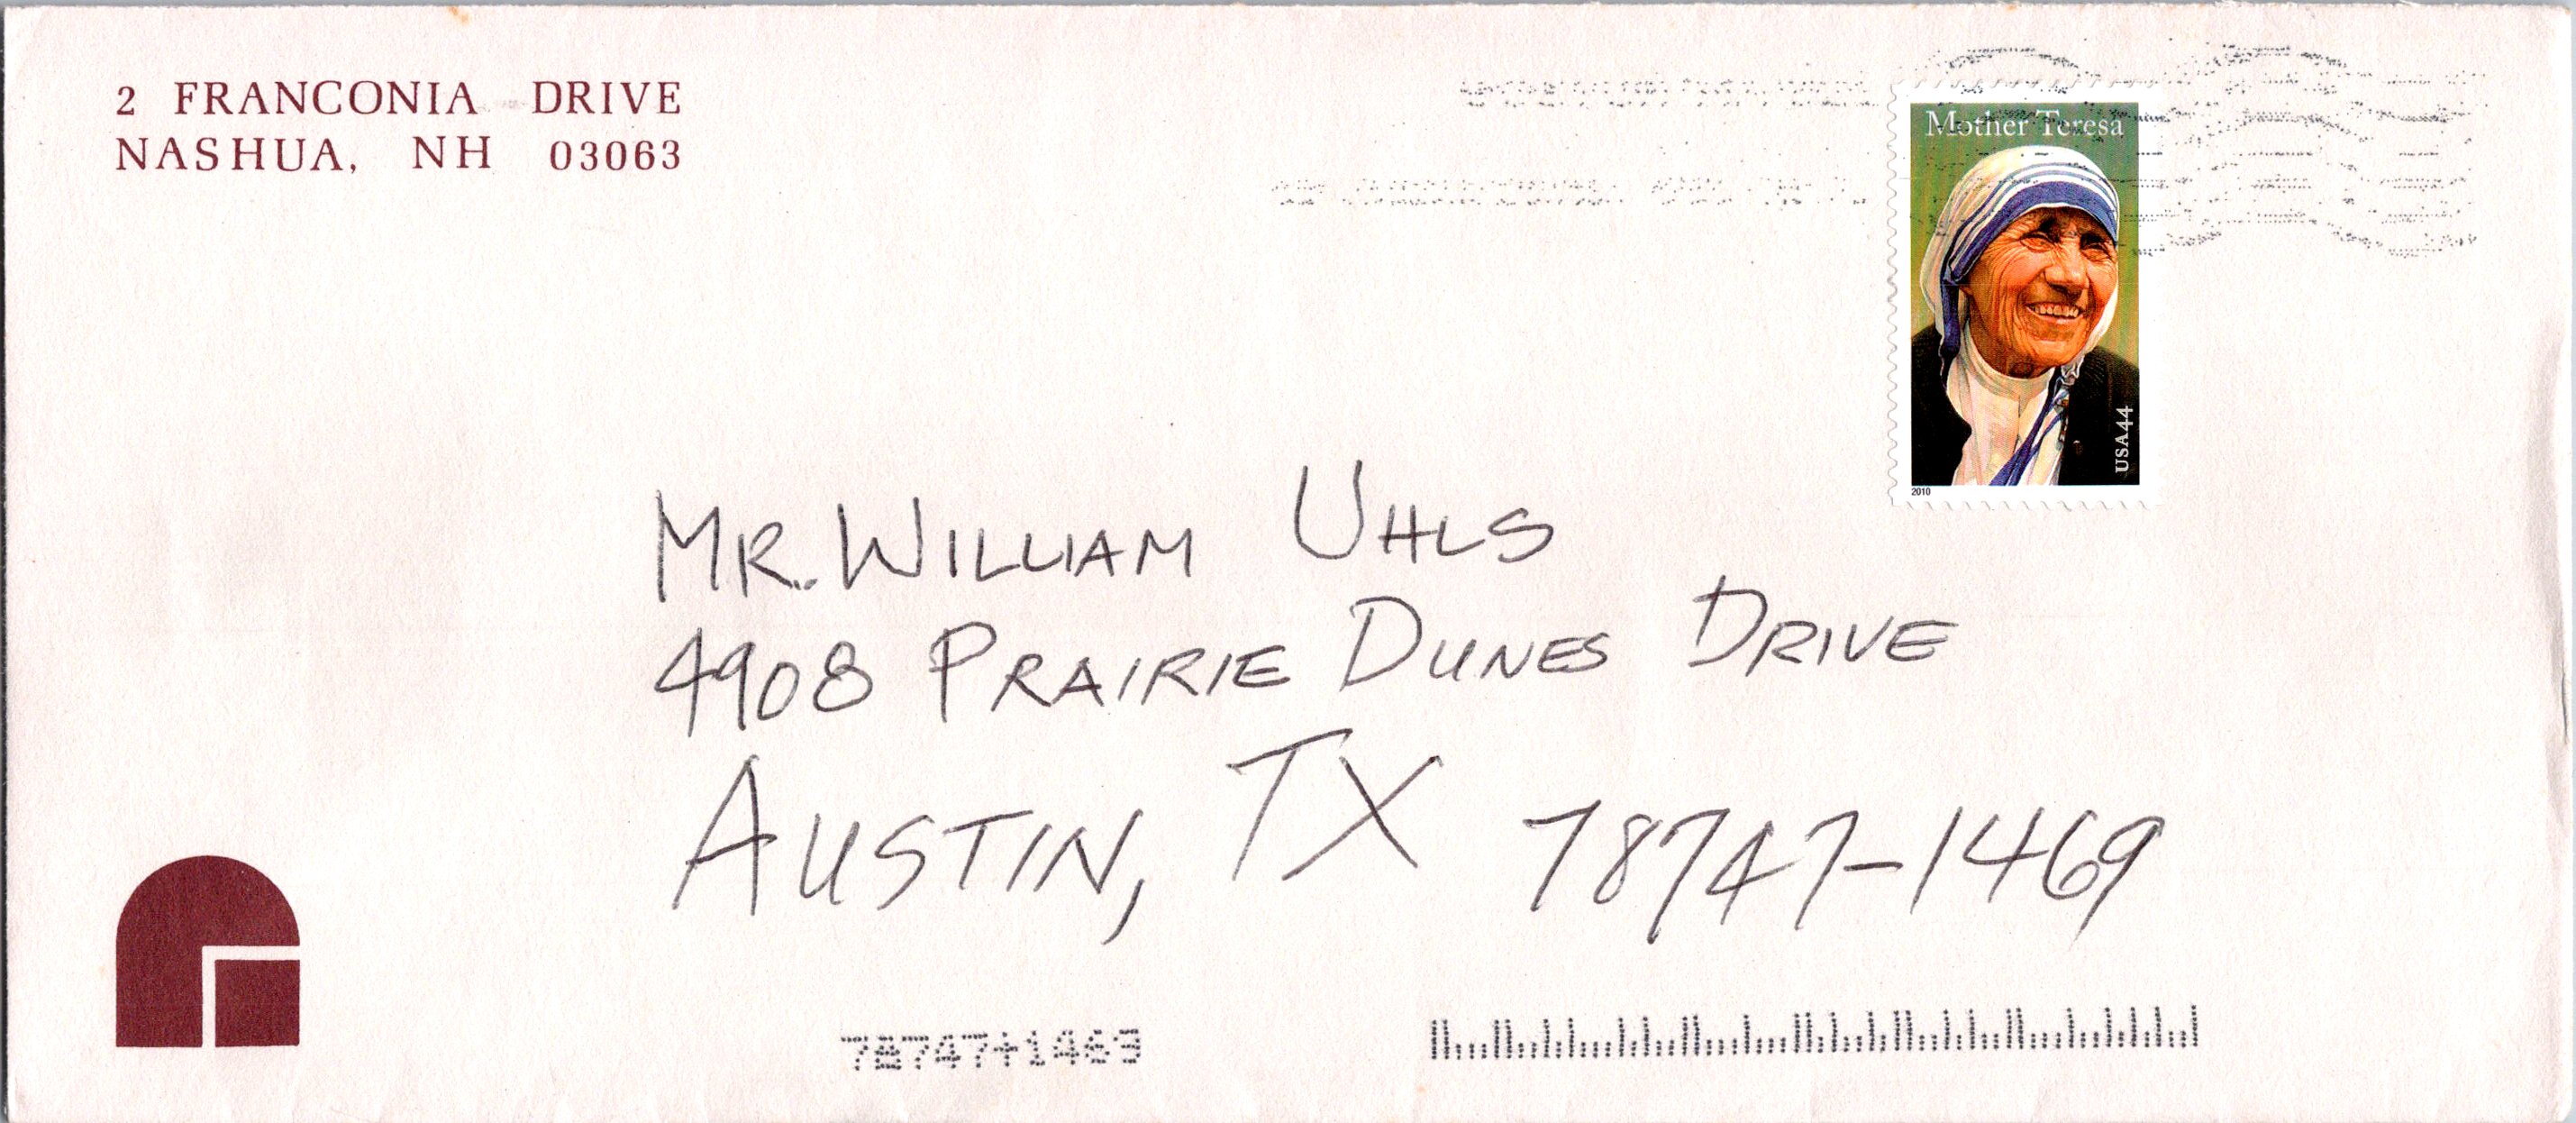 2 FRANCONIA DRIVE
NASHUA, NH 03063
Mother Teresa
USA44
2010
MR. WILLIAM UHLS
4908 PRAIRIE DUNES DRIVE
AUSTIN, TX 78747-1469
78747+1469